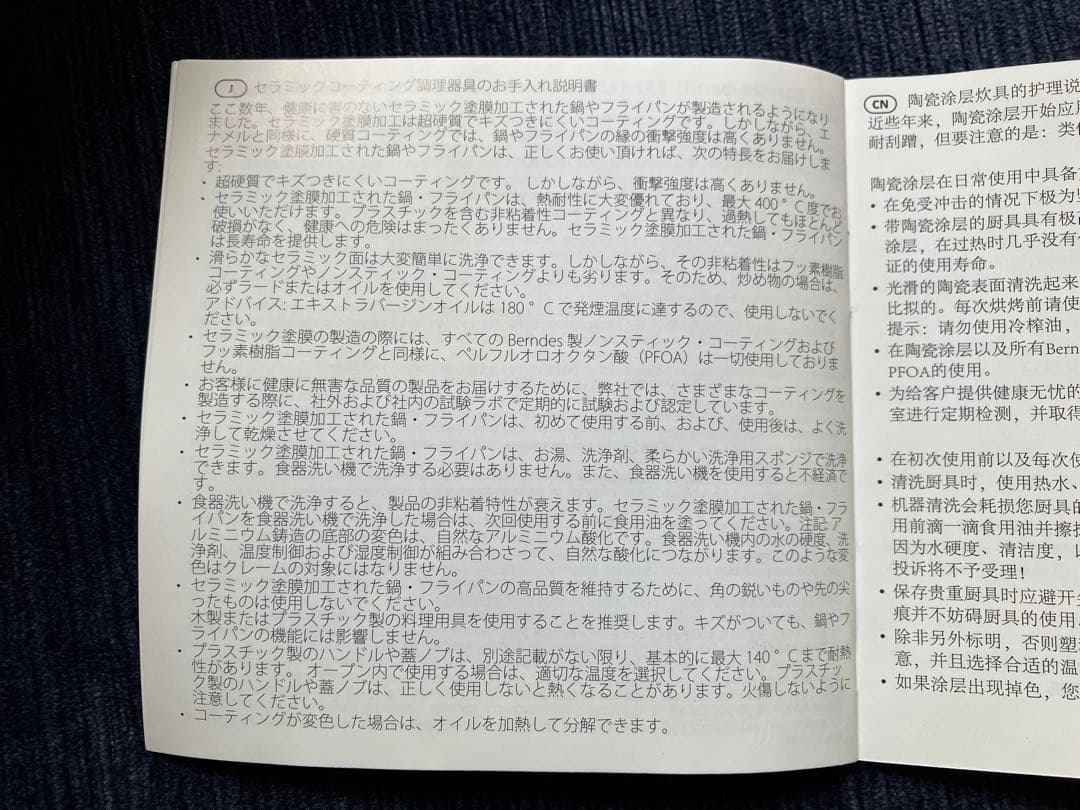 J セラミックコーティング調理器具のお手入れ説明書
ここ数年、健康に害のないセラミック塗膜加工された鍋やフライパンが製造されるようになり
ました。セラミック塗膜加工は超硬質でキズつきにくいコーティングです。しかしながら、エ
ナメルと同様に、硬質コーティングでは、鍋やフライパンの縁の衝撃強度は高くありません。
セラミック塗膜加工された鍋やフライパンは、正しくお使い頂ければ、次の特長をお届けしま
す:
・超硬質でキズつきにくいコーティングです。 しかしながら、衝撃強度は高くありません。
・セラミック塗膜加工された鍋・フライパンは、熱耐性に大変優れており、最大 400 °C 度でお
使いいただけます。プラスチックを含む非粘着性コーティングと異なり、過熱してもほとんど
破損がなく、健康への危険はまったくありません。セラミック塗膜加工された鍋・フライパン
は長寿命を提供します。
・滑らかなセラミック面は大変簡単に洗浄できます。しかしながら、その非粘着性はフッ素樹脂
コーティングやノンスティック・コーティングよりも劣ります。そのため、炒め物の場合は、
必ずラードまたはオイルを使用してください。
アドバイス: エキストラバージンオイルは 180 °C で発煙温度に達するので、使用しないでく
ださい。
・セラミック塗膜の製造の際には、すべての Berndes 製ノンスティック・コーティングおよび
フッ素樹脂コーティングと同様に、ペルフルオロオクタン酸（PFOA）は一切使用しておりま
せん。
・お客様に健康に無害な品質の製品をお届けするために、弊社では、さまざまなコーティングを
製造する際に、社外および社内の試験ラボで定期的に試験および認定しています。
・セラミック塗膜加工された鍋・フライパンは、初めて使用する前、および、使用後は、よく洗
浄して乾燥させてください。
・セラミック塗膜加工された鍋・フライパンは、お湯、洗浄剤、柔らかい洗浄用スポンジで洗浄
できます。食器洗い機で洗浄する必要はありません。また、食器洗い機を使用すると不経済で
す。
・食器洗い機で洗浄すると、製品の非粘着特性が衰えます。セラミック塗膜加工された鍋・フラ
イパンを食器洗い機で洗浄した場合は、次回使用する前に食用油を塗ってください。注記:ア
ルミニウム鋳造の底部の変色は、自然なアルミニウム酸化です。食器洗い機内の水の硬度、洗
浄剤、温度制御および湿度制御が組み合わさって、自然な酸化につながります。このような変
色はクレームの対象にはなりません。
・セラミック塗膜加工された鍋・フライパンの高品質を維持するために、角の鋭いものや先の尖
ったものは使用しないでください。
木製またはプラスチック製の料理用具を使用することを推奨します。キズがついても、鍋やフ
ライパンの機能には影響しません。
・プラスチック製のハンドルや蓋ノブは、別途記載がない限り、基本的に最大 140 °C まで耐熱
性があります。 オーブン内で使用する場合は、適切な温度を選択してください。プラスチッ
ク製のハンドルや蓋ノブは、正しく使用しないと熱くなることがあります。火傷しないように
注意してください。
・コーティングが変色した場合は、オイルを加熱して分解できます。
CN 陶瓷涂层炊具的护理说
近些年来，陶瓷涂层开始应用
耐刮蹭，但要注意的是：类
陶瓷涂层在日常使用中具备
• 在免受冲击的情况下极为坚
• 带陶瓷涂层的厨具具有极
涂层，在过热时几乎没有
证的使用寿命。
• 光滑的陶瓷表面清洗起来
比拟的。每次烘烤前请使
提示：请勿使用冷榨油，
• 在陶瓷涂层以及所有Bern
PFOA的使用。
• 为给客户提供健康无忧的
室进行定期检测，并取得
• 在初次使用前以及每次使
• 清洗厨具时，使用热水、
• 机器清洗会耗损您厨具的
用前滴一滴食用油并擦拭
因为水硬度、清洁度，以
投诉将不予受理！
• 保存贵重厨具时应避开尖
痕并不妨碍厨具的使用
• 除非另外标明，否则塑
意，并且选择合适的温
• 如果涂层出现掉色，您